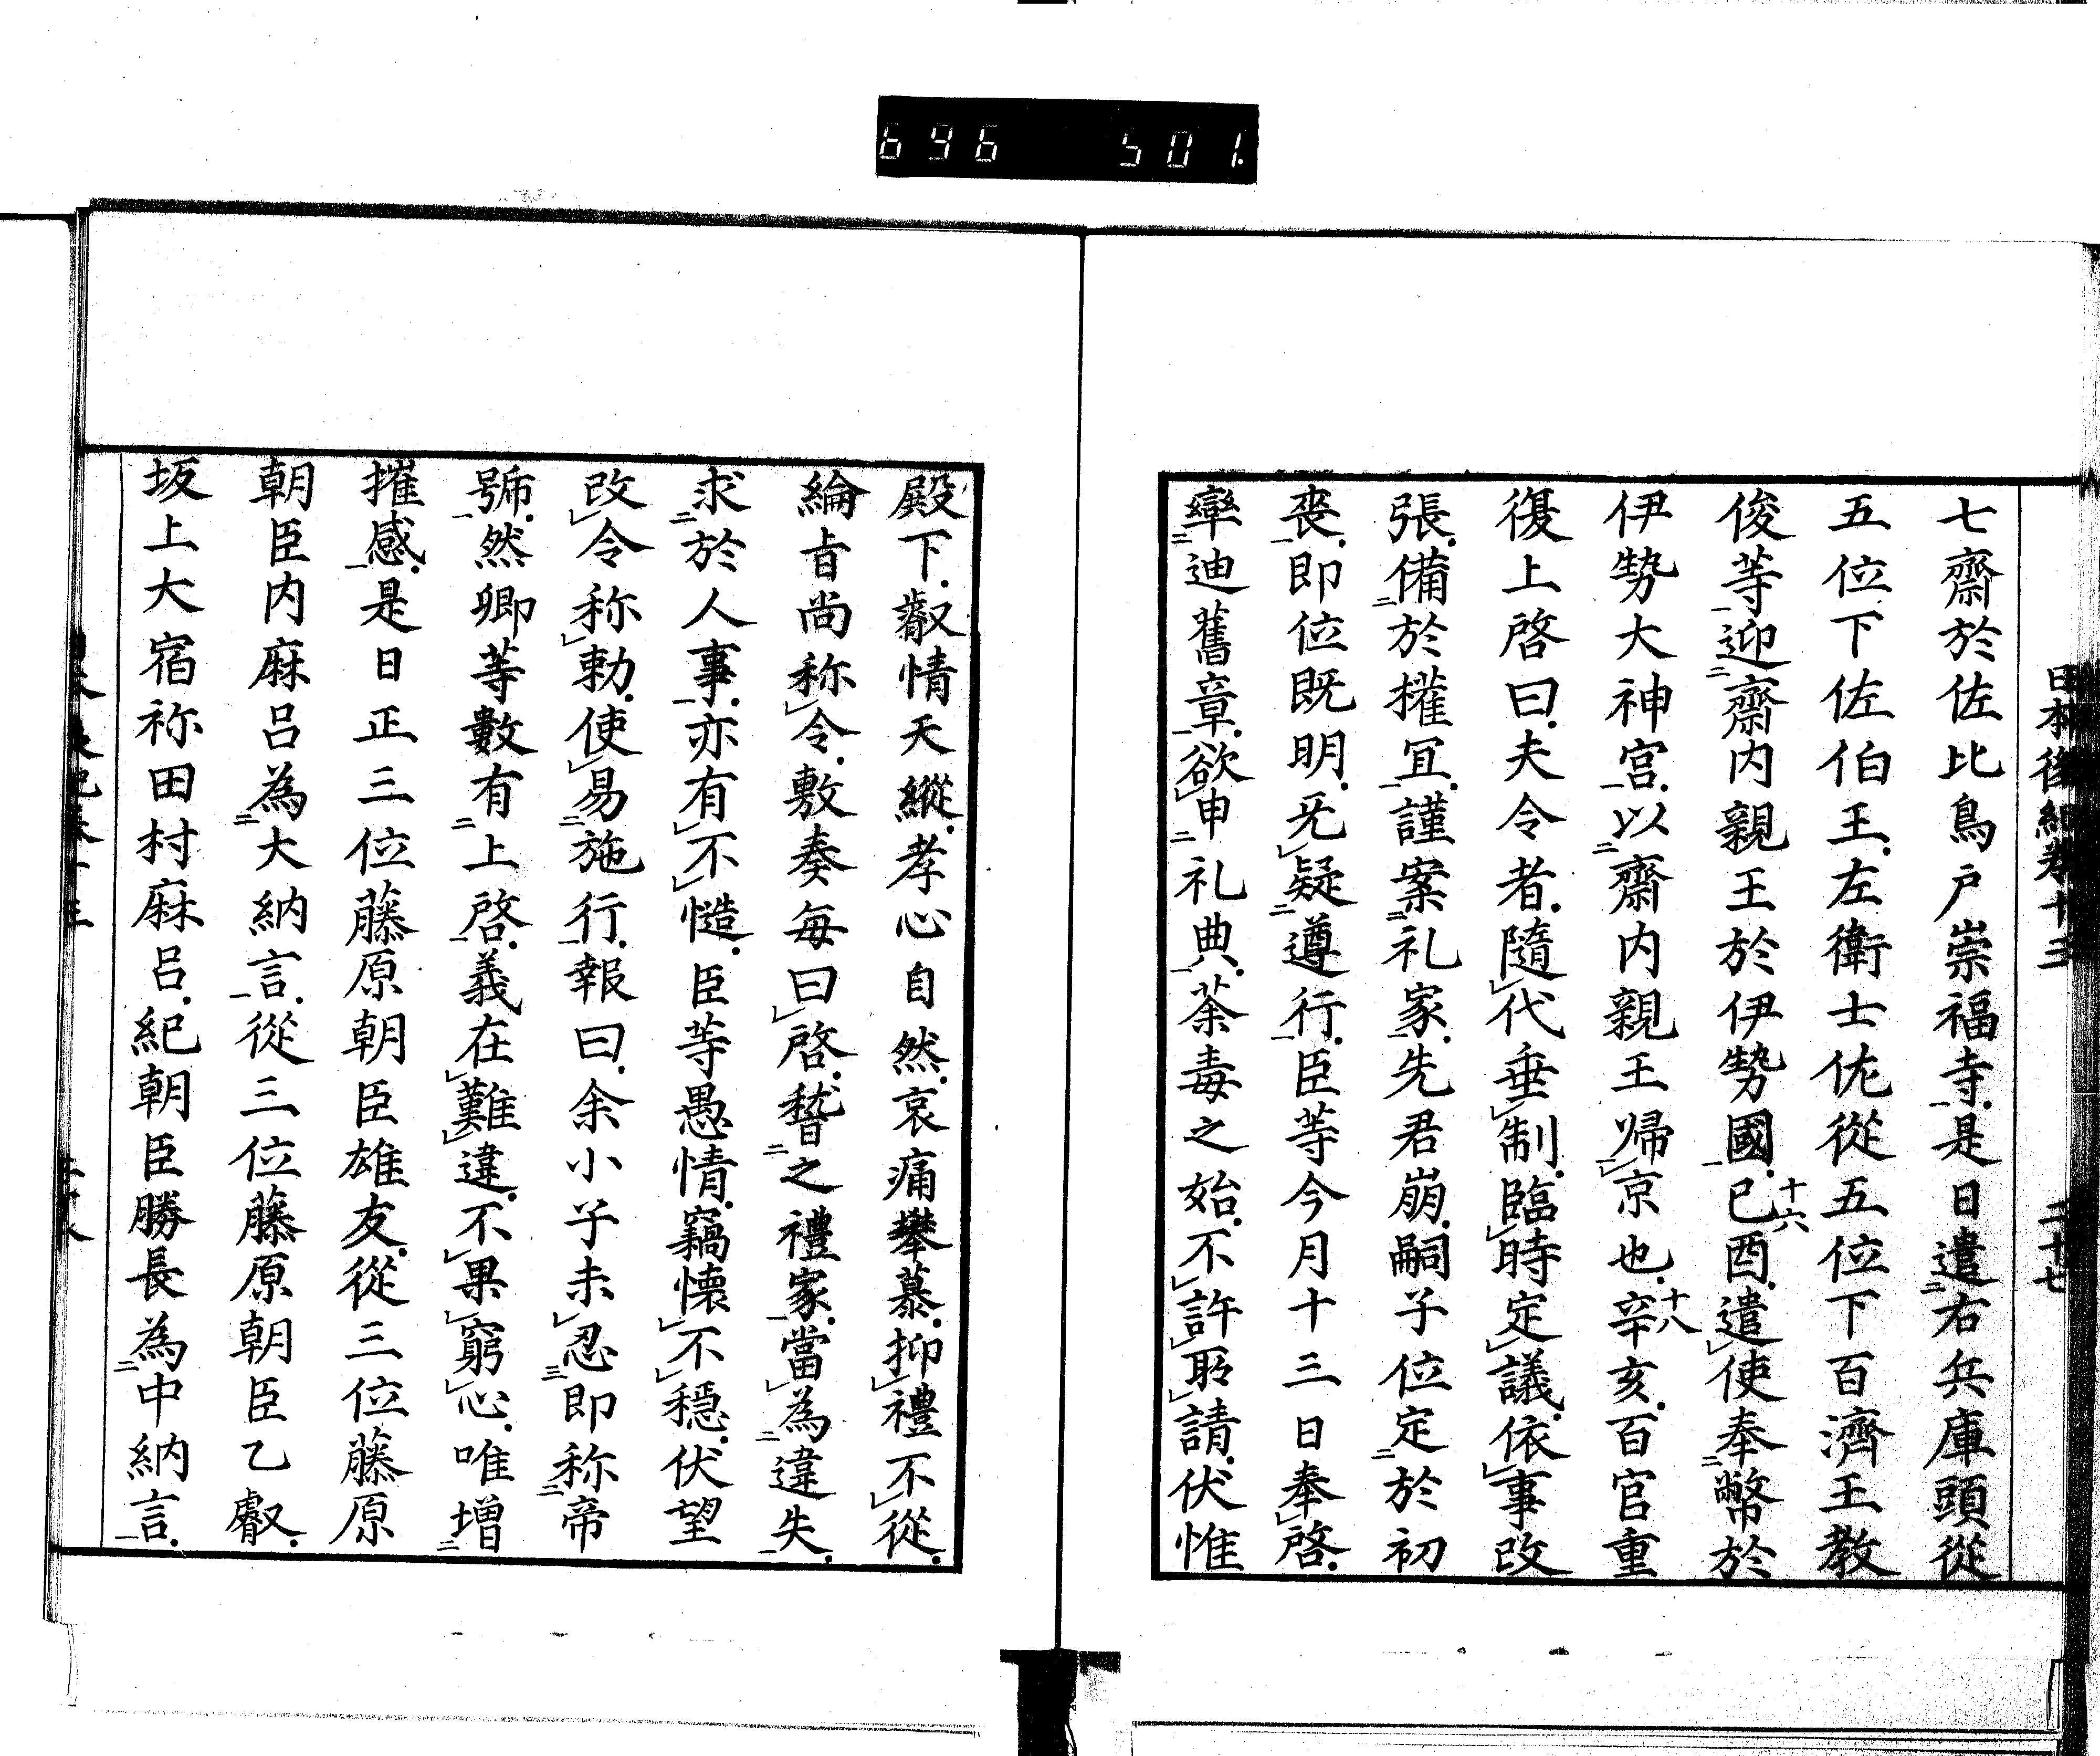 696 501.
日本後紀卷十三 二十七
七齋於佐比鳥戸崇福寺是日遣右兵庫頭從
五位下佐伯王左衛士佐從五位下百濟王教
俊等迎齋内親王於伊勢國己酉遣使奉幣於
十六
伊勢大神宮以齋内親王歸京也辛亥百官重
十八
復上啓曰夫令者隨代垂制臨時定議依事改
張備於權宜謹案礼家先君崩嗣子位定於初
喪即位既明无疑遵行臣等今月十三日奉啓
率迪舊章欲申礼典荼毒之始不許所請伏惟
殿下叡情天縱孝心自然哀痛攀慕抑禮不從
綸旨尚称令敷奏每曰啓稽之禮家當為違失
求於人事亦有不愷臣等愚情竊懐不穏伏望
改令称勅使易施行報曰余小子未忍即称帝
號然卿等數有上啓義在難違不果窮心唯增
摧感是日正三位藤原朝臣雄友從三位藤原
朝臣内麻呂為大納言從三位藤原朝臣乙叡
坂上大宿祢田村麻呂紀朝臣勝長為中納言